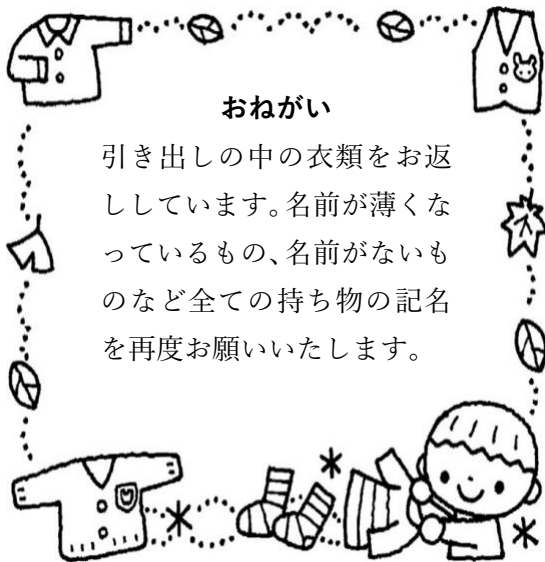 おねがい
引き出しの中の衣類をお返
ししています。名前が薄くな
っているもの、名前がないも
のなど全ての持ち物の記名
を再度お願いいたします。